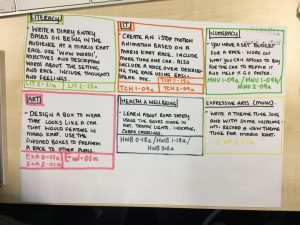 LITERACY
- WRITE A DIARY ENTRY
BASED ON BEING IN THE
AUDIENCE AT A MARIO KART
RACE. USE 'WOW WORDS',
ADJECTIVES AND DESCRIPTIVE
WORDS ABOUT THE SETTING
AND RACE. INCLUDE THOUGHTS
AND FEELINGS.
LIT 2-
IT
- CREATE AN I STOP MOTION
ANIMATION BASED ON A
MARIO KART RACE. INCLUDE
MORE THAN ONE CAR. ALSO
INCLUDE A VOICE OVER DESCRIB-
ING THE RACE USING EASI-
SPEAK MIC.
TCH 1-09a TCH 2-09a
NUMERACY
- YOU HAVE A SET 'BUDGET'
FOR A RACE. WORK OUT
WHAT YOU CAN AFFORD TO BUY
FOR THE CAR TO IMPROVE IT
AND HELP IT GO FASTER.
MNU 1-09a / MNU 1-09b
MNU 2-09a
ART
- DESIGN A BOX TO WEAR
THAT LOOKS LIKE A CAR
THAT WOULD FEATURE IN
MARIO KART. USE THE
FINISHED BOXES TO PERFORM
A RACE TO OTHER PUPILS.
EXA 0-01a
EXA 2-01a
HEALTH & WELLBEING
- LEARN ABOUT ROAD SAFETY
USING THE BOXES MADE IN
ART. TRAFFIC LIGHTS, INDICATING,
ZEBRA CROSSINGS.
HWB 0-18a / HWB 1-18a /
HWB 2-18a
EXPRESSIVE ARTS (MUSIC)
- WRITE A THEME TUNE
SONG AND WITH SOME
RECORD A NEW THEME
TUNE FOR MARIO KART.
EXA 2-17a